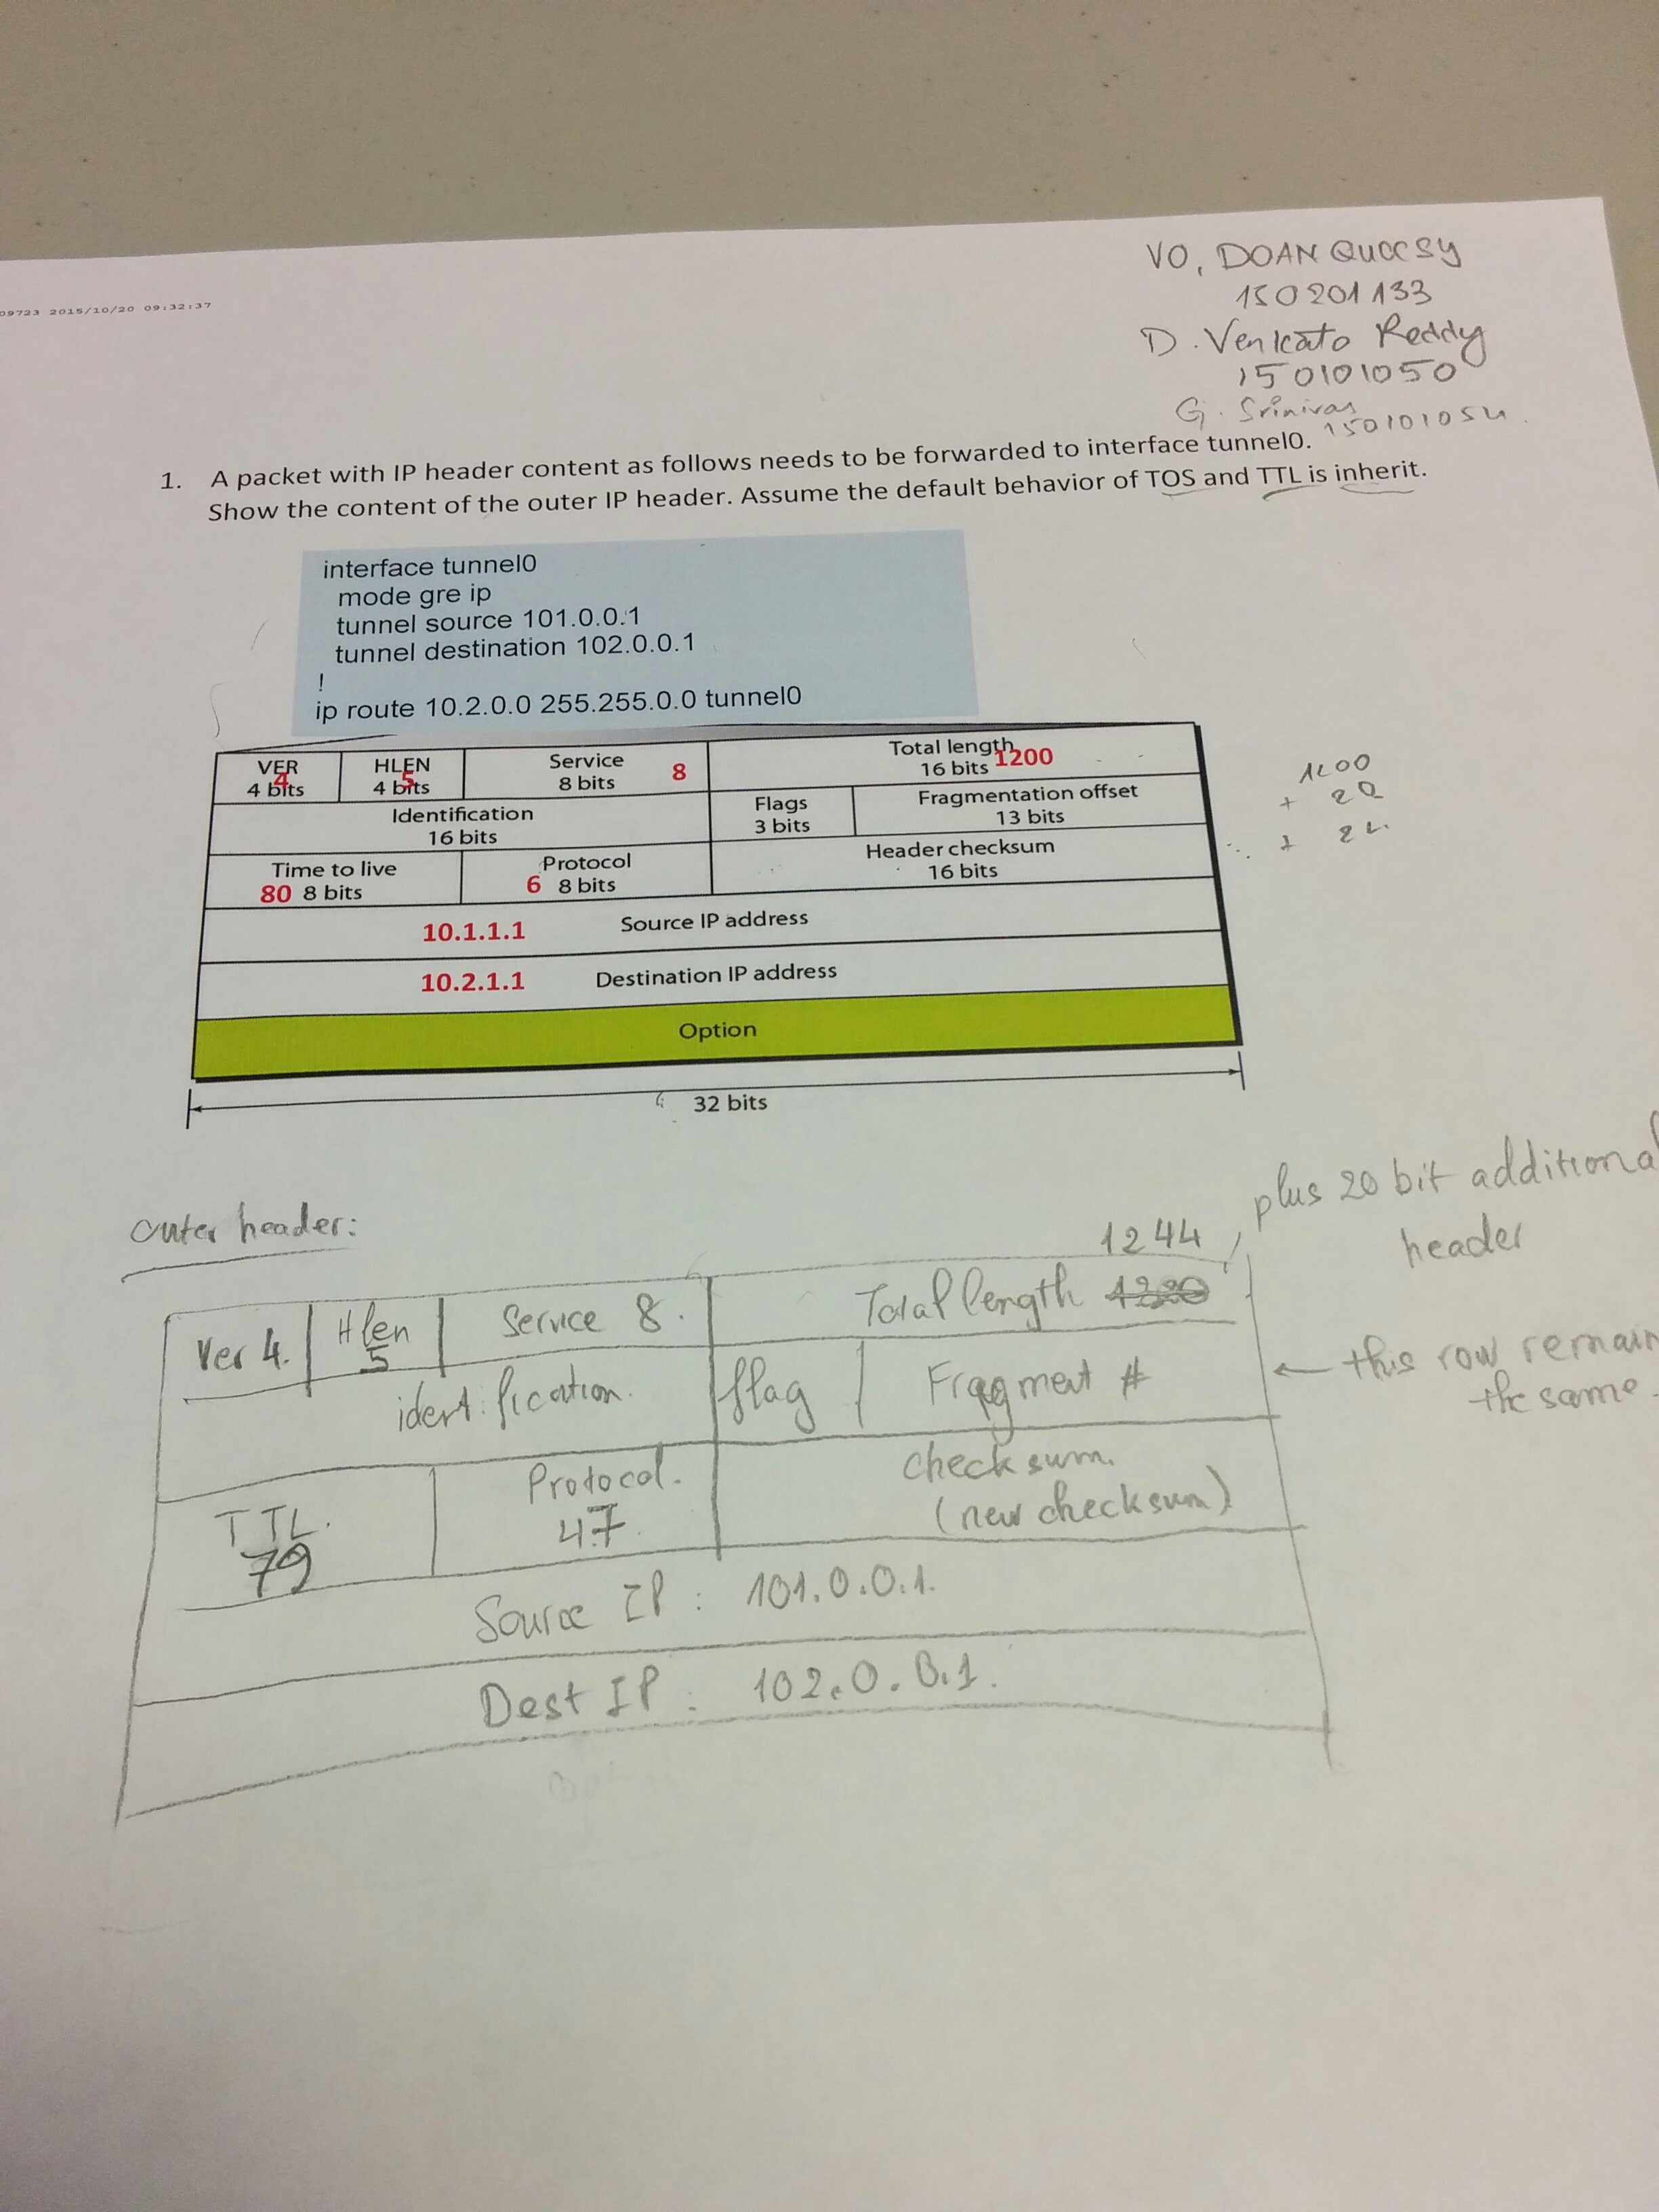 09723 2015/10/20 09:32:37
VO, DOAN QUOCSY
150201133
D. Venkato Reddy
150101050
G. Srinivas
150101054.
1. A packet with IP header content as follows needs to be forwarded to interface tunnel0.
Show the content of the outer IP header. Assume the default behavior of TOS and TTL is inherit.
interface tunnel0
mode gre ip
tunnel source 101.0.0.1
tunnel destination 102.0.0.1
!
ip route 10.2.0.0 255.255.0.0 tunnel0
VER 4 bits 4
HLEN 4 bits 5
Service 8 bits 8
Total length 16 bits 1200
Identification 16 bits
Flags 3 bits
Fragmentation offset 13 bits
Time to live 80 8 bits
Protocol 6 8 bits
Header checksum 16 bits
10.1.1.1 Source IP address
10.2.1.1 Destination IP address
Option
32 bits
1200
+ 20
+ 24
outer header:
1244, plus 20 bit additional
header
Ver 4. Hlen 5 Service 8. Total length
identification. flag Fragment # ← this row remain
the same.
TTL. 79 Protocol. 47 checksum. (new checksum)
Source IP : 101.0.0.1.
Dest IP : 102.0.0.1.